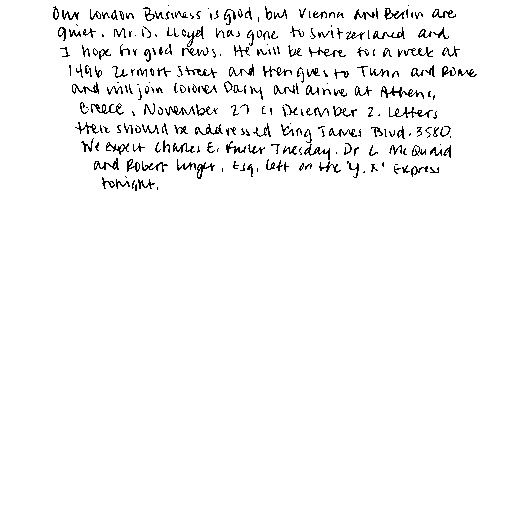 Our London Business is good, but Vienna and Berlin are
quiet. Mr. D. Lloyd has gone to Switzerland and
I hope for good news. He will be there for a week at
1496 Zermott Street and then goes to Turin and Rome
and will join Colonel Parry and arrive at Athens,
Greece, November 27 or December 2. Letters
there should be addressed King James Blvd. 3580.
We expect Charles E. Fuller Tuesday. Dr L. McQuaid
and Robert Unger, Esq. left on the 'Y.X' Express
tonight.